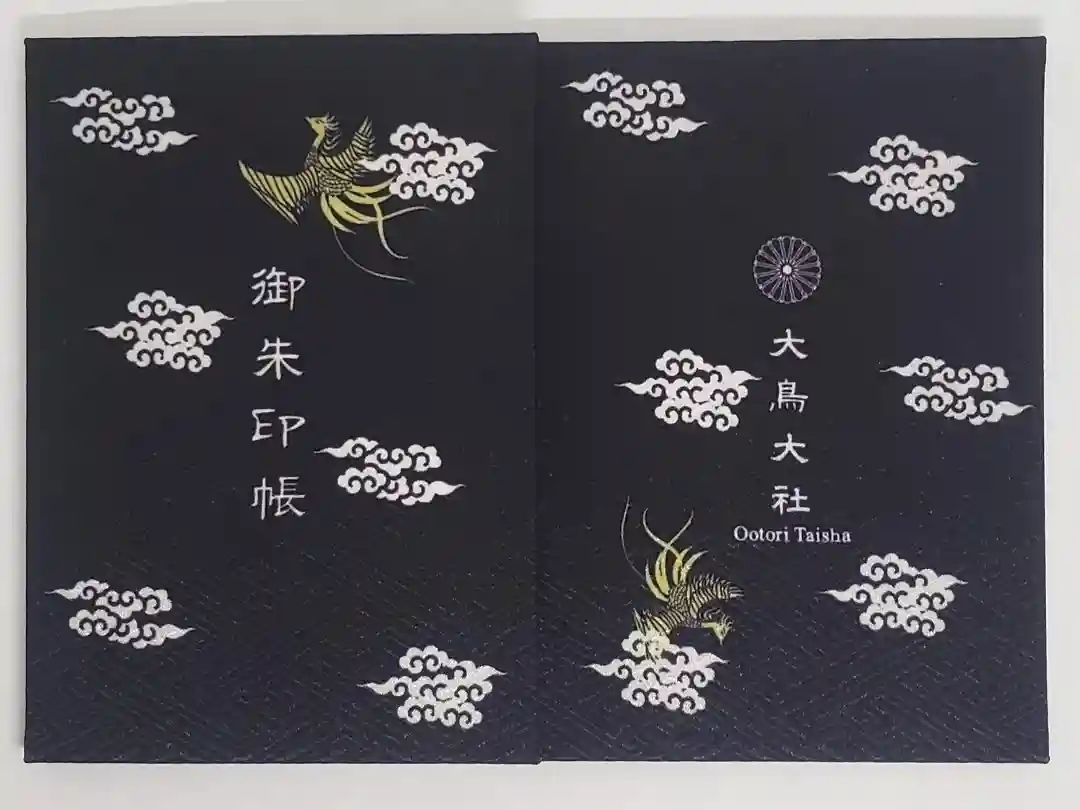 御朱印帳
大鳥大社
Ootori Taisha